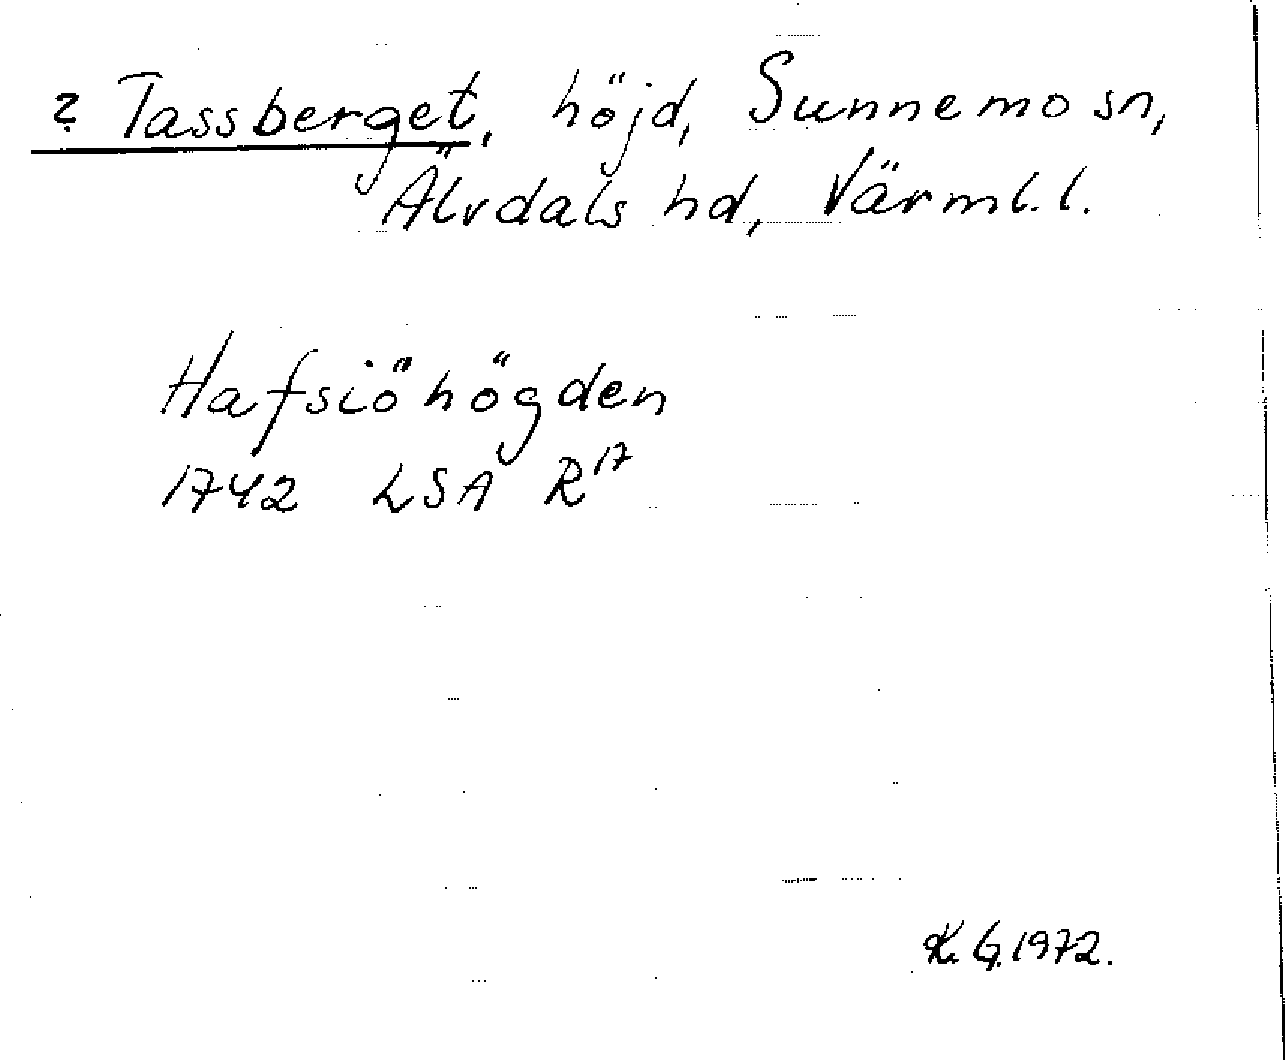 ? Tassberget, höjd, Sunnemo sn,
Älvdals hd, Värml. l.
Hafsiöhögden
1742 LSA R17
K. G. 1972.